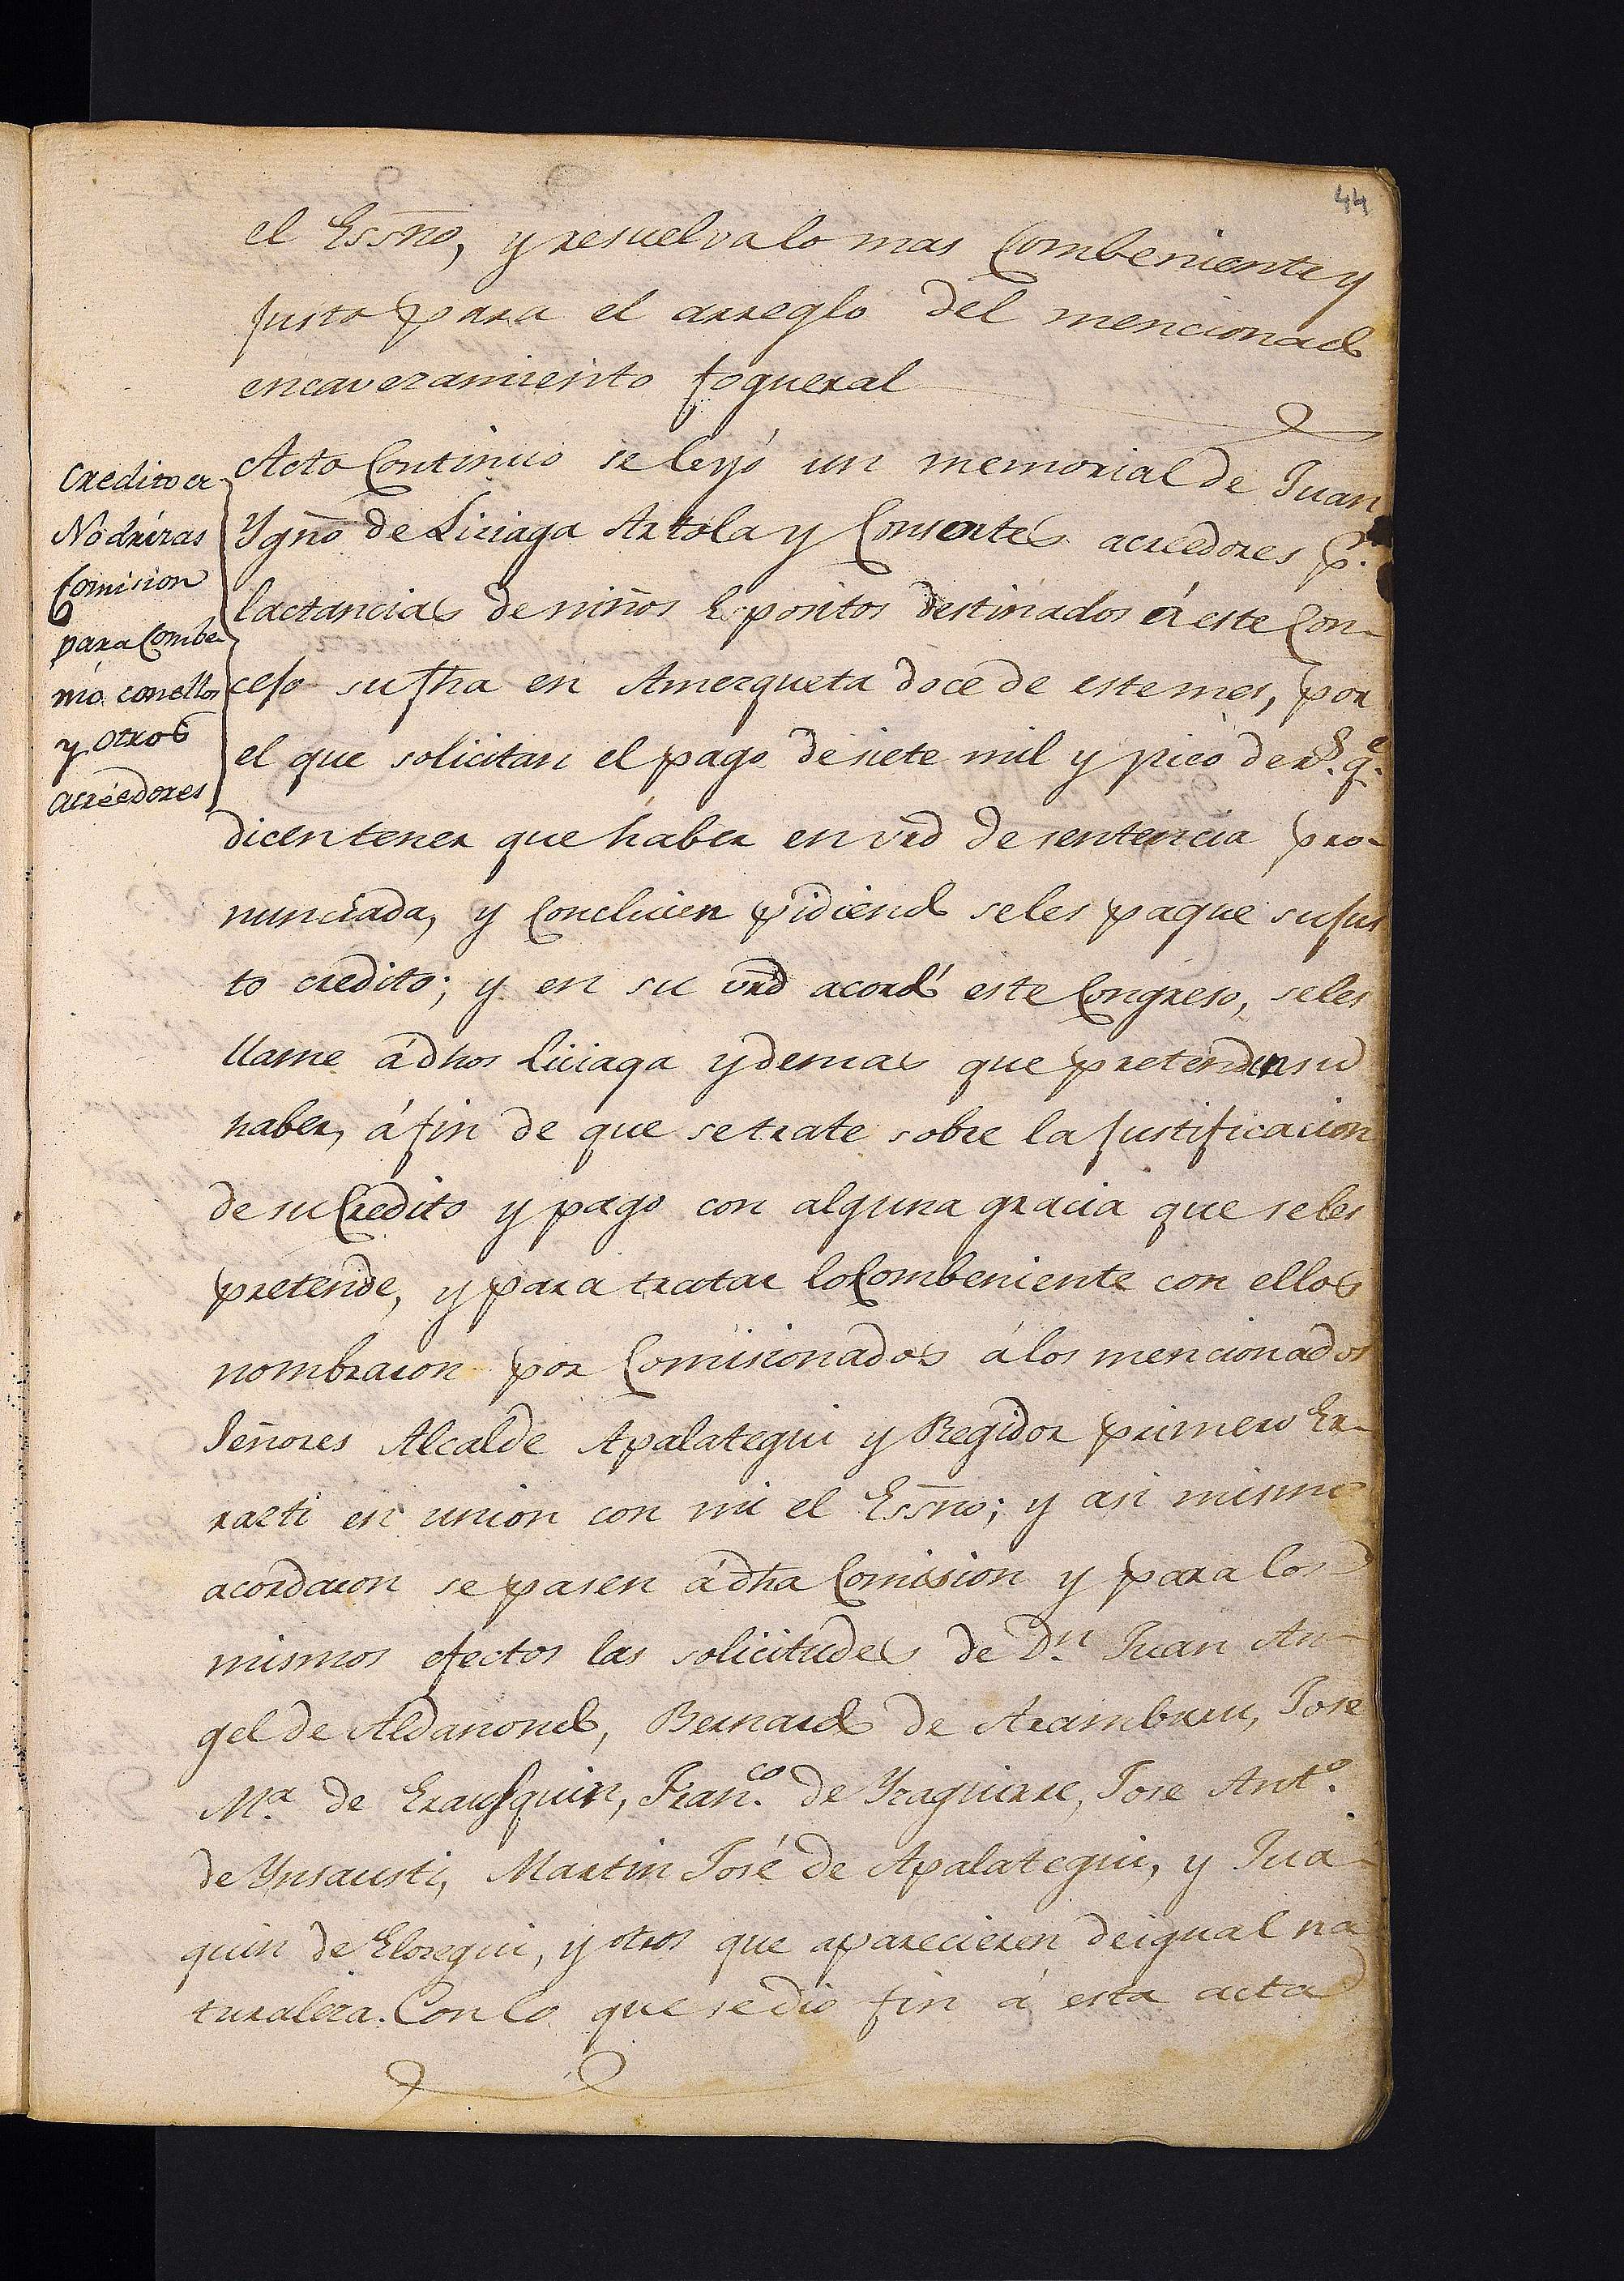 44
el Essño, y resuelva lo mas Combeniente y
justo para el arreglo del mencionado
encavezamiento fogueral
Acto Continuo se leyó un memorial de Juan
Ygño de Liciaga Artola y Consortes acreedores p.r
lactancias de niños Espositos destinados á este Con-
ceso su fha en Amezqueta doce de este mes, por
el que solicitan el pago de siete mil y pico de r.s q.e
dicen tener que haber en vrd de sentencia pro-
nunciada, y Concluien pidiendo seles pague su jus
to credito; y en su vrd acordó este Congreso, seles
llame á dhos Liciaga y demas que pretenden su
haber, á fin de que se trate sobre la justificacion
de su Credito y pago con alguna gracia que seles
pretende, y para tratar lo Combeniente con ellos
nombraron por Comisionados á los mencionados
Señores Alcalde Apalategui y Regidor primero Er-
razti en union con mi el Essño; y asi mismo
acordaron se pasen á dha Comision y para los
mismos efectos las solicitudes de D.n Juan An-
gel de Aldanondo, Bernardo de Aramburu, Jose
M.a de Erausquin, Fran.co de Yraguirre, Jose Ant.o
de Ynsausti, Martin José de Apalategui, y Jua-
quin de Elosegui, y otros que aparecieren de igual na
turaleza. Con lo que se dio fin á esta acta
Credito de
Nodrizas
Comision
para Combe-
nio con ellos
y otros
acréedores